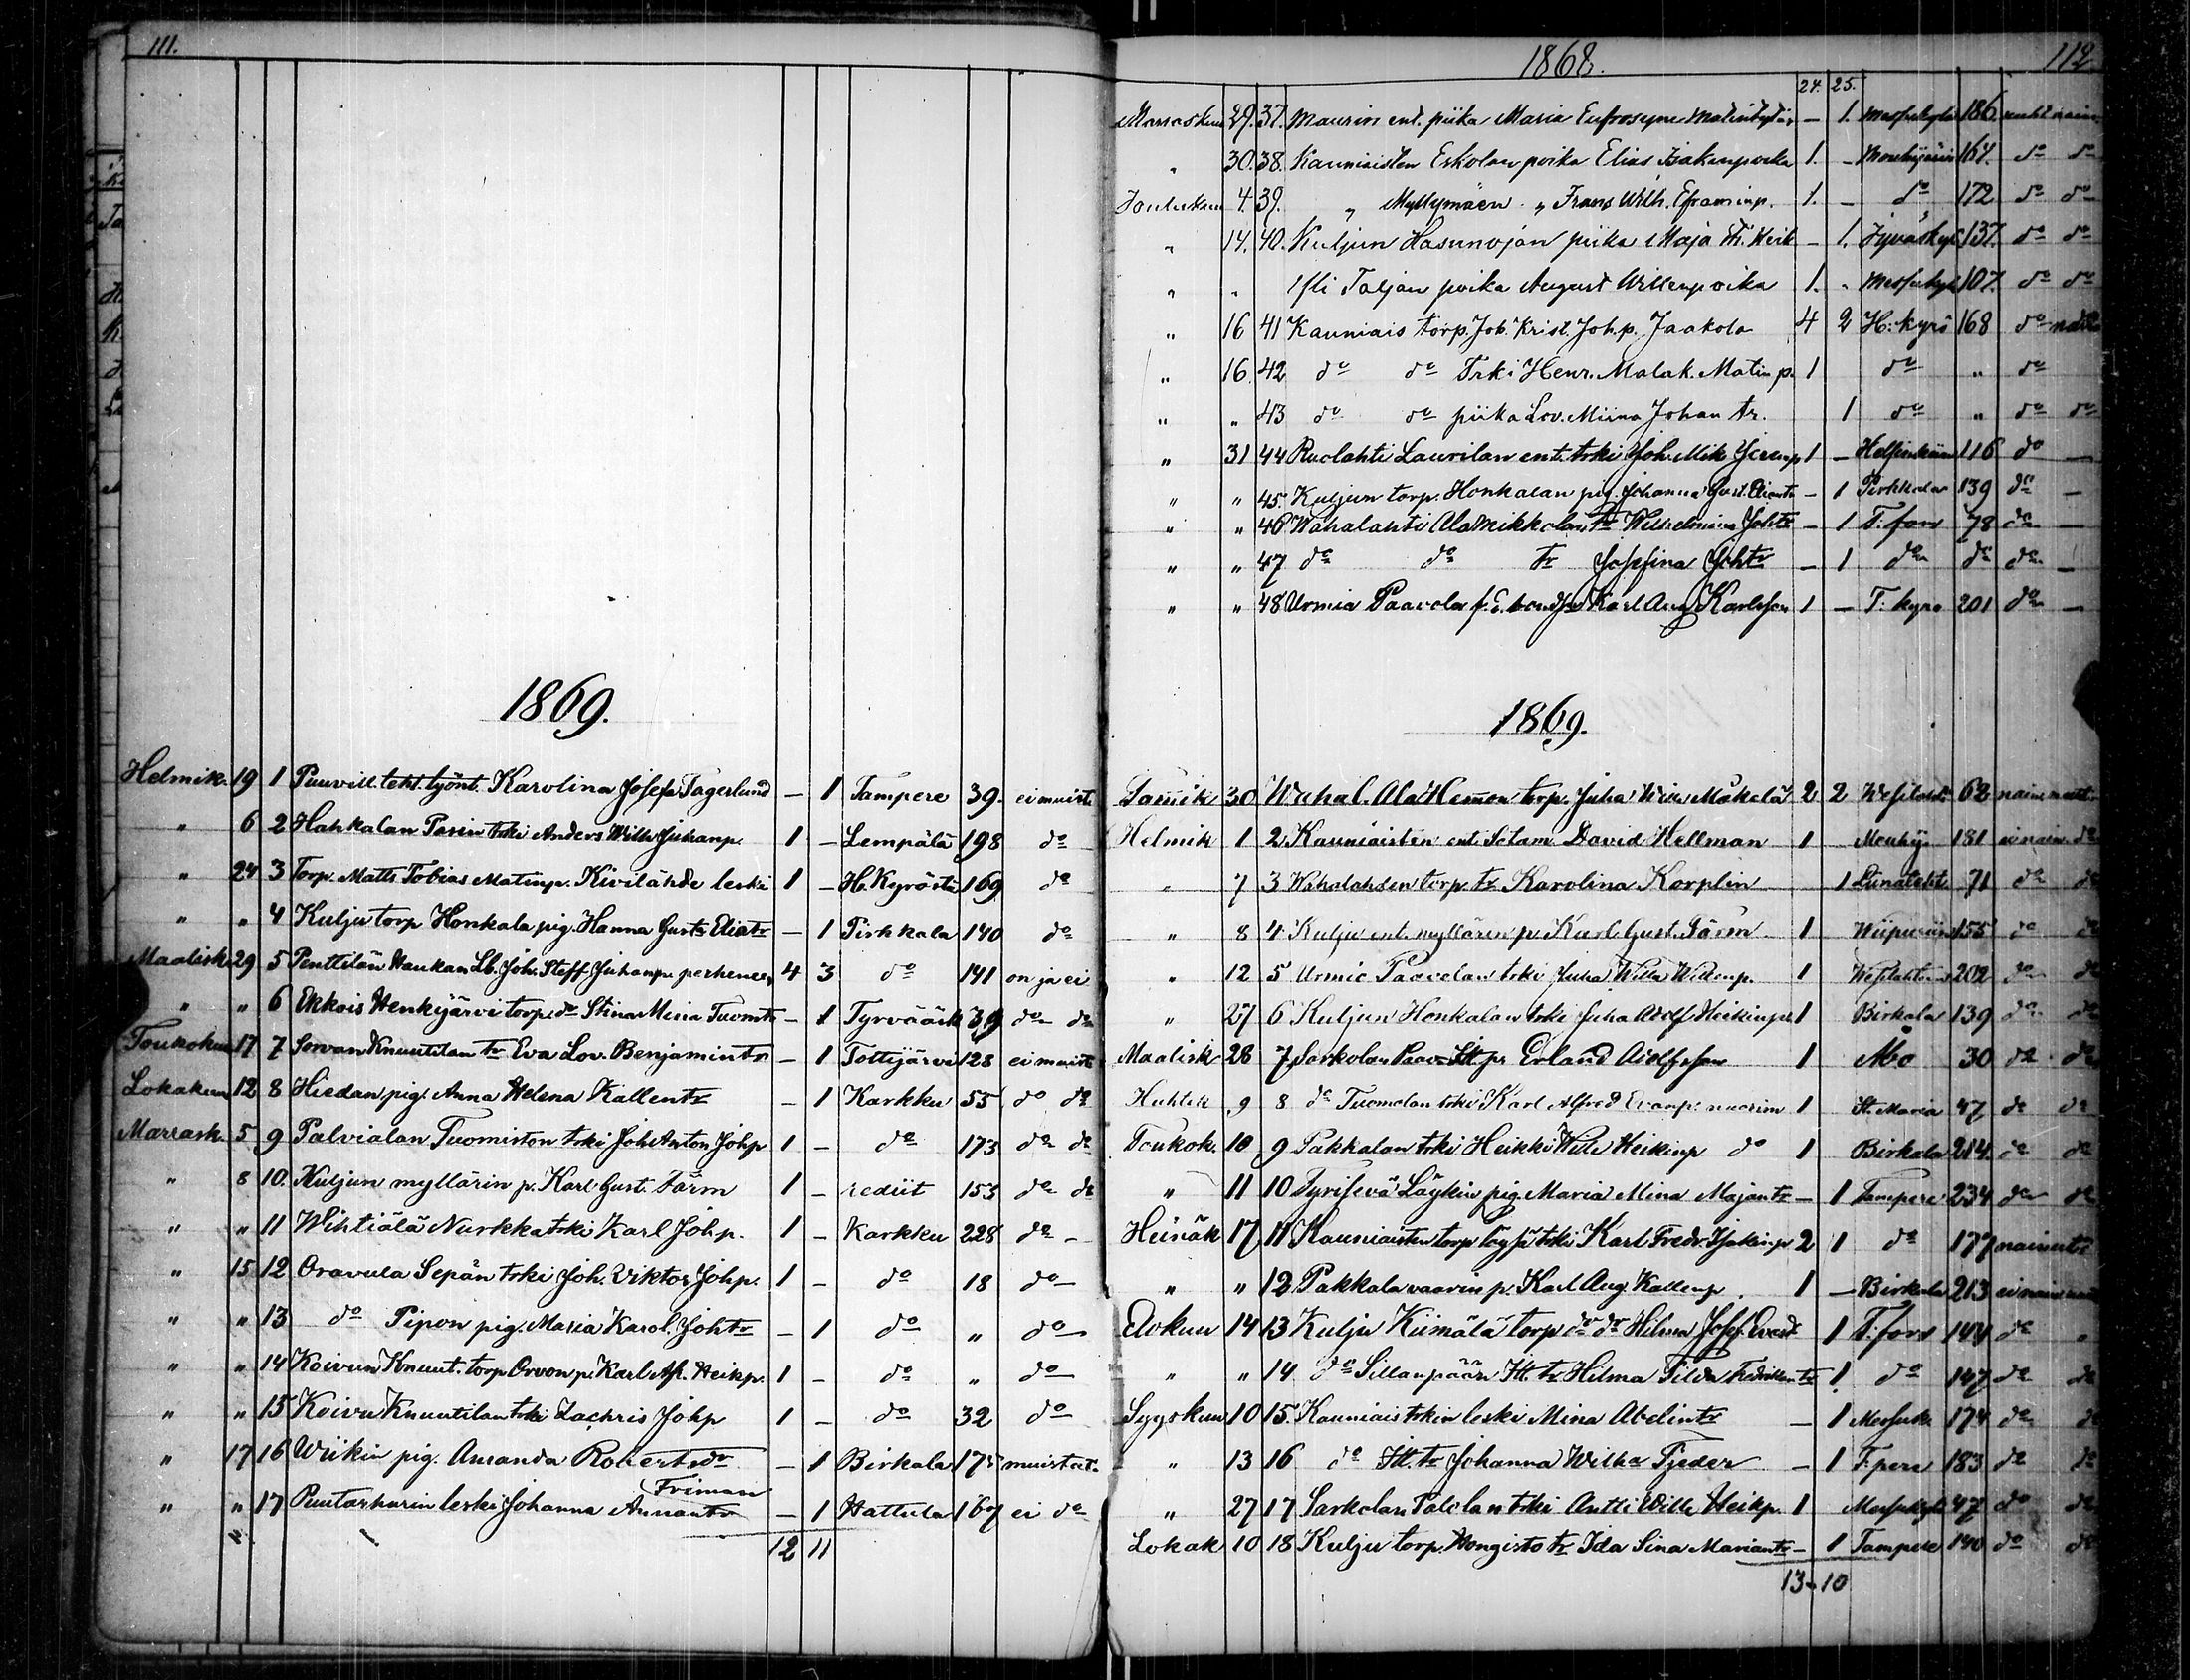 111.
1869.
Helmik. 19 1 Puuvill. teht. työnt. Karolina Josefa Fagerlund — 1 Tampere 39. ei muist
" 6 2 Hahkalan Pasin trki Anders Wilh. Juhanp. 1 — Lempälä 198 do
" 24 3 Torp. Matts Tobias Matinp. Kivilähde leski 1 — H. Kyröstä 169 do
" " 4 Kulju torp Honkala pig. Hanna Gust. Eliatr — 1 Pirkkala 140 do
Maalisk 29 5 Penttilän Haukan Lb. Joh. Steff Juhanp. perheneen 4 3 do 141 on ja ei
" " 6 Ekkois Henkijärvi torp. dr Stina Miina Tuomtr — 1 Tyrvääst 39 do do
Toukokuu 17 7 Sorvan Knuutilan tr Eva Lov. Benjamintr — 1 Tottijärvi 128 ei muist
Lokakuu 12 8 Hiedan pig. Anna Helena Kallentr — 1 Karkku 55 do do
Marrask. 5 9 Palvialan Tuomiston trki Joh Anton Johp 1 — do 173 do do
" 8 10. Kuljun myllärin p. Karl Gust. Färm 1 — rediit 153 do do
" " 11 Wihtiälä Nurkka trki Karl Johp. 1 — Karkku 228 do —
" 15 12 Oravula Sepän trki Joh. Viktor Johp. 1 — do 18 do
" " 13 do Pipon pig. Maria Karol. Johtr — 1 do " do
" " 14 Koivun Knuut. torp Orvon p. Karl Af. Heikp. 1 — do " do
" " 15 Koivu Knuutilan trki Zachris Johp 1 — do 32 do
" 17 16 Wiikin pig. Amanda Robertsdr — 1 Birkala 175 muistut.
Friman
" " 17 Puutarhurin leski Johanna Annantr — 1 Hattula 167 ei do
12 11
1868. 112
24. 25.
Marraskuu 29. 37. Maurin ent. piika Maria Eufrosyne — 1. Messukylä 186
" 30. 38. Kauniaisten Eskolan poika Elias Isakinpoika 1. — Mouhijärvi 164. do do
Joulukuu 4. 39. " Myllymäen " Frans Wilh. Eframinp. 1. — do 172 do do
" 14. 40. Kuljun Hasunojan piika Maja Fr. Heik — 1. Jyväskyl 137. do do
" " Yli Taljan poika August Willenpoika 1. " Messukyl 107. do do
" 16 41 Kauniais torp. Joh. Krist. Joh.p. Jaakola 4 2 H:kyrö 168 do
" 16 42 do do Trki Henr. Malak. Matinp. 1 do " do
" " 43 do do piika Lov. Miina Johan tr. 1 do " do do
" 31 44 Ruolahti Laurilan ent. trki Joh. Mik 1 — Helsinkiin 116 do —
" " 45. Kuljun torp. Honkalan pig. Johanna Gust. Eliantr — 1 Pirkkala 139 do —
" " 46 Wahalahti Ala Mikkolan tr Wilhelmina Johtr — 1 T:fors 78 do —
" " 47 do do tr Josefina Johtr — 1 do do do —
" " 48 Urmia Paavola f. E. bondson Karl Aug Karlsson 1 — T:kyro 201 do —
1869.
Tammik 30 Wahal. Ala Hemmon torp. Juha Mäkelä 2 2 Wesilahti 62 nain
Helmik 1 2 Kauniaisten ent. Sotam. David Hellman 1 Mouhij. 181 ei nain. do
" 7 3 Wahalahden torp. tr Karolina Korplin 1 71 do do
" 8 4 Kulju ent. myllärin p. Karl Gust. Färm 1 Wiipuriin 155 do do
" 12 5 Urmia Paavolan trki Juha Wilh. Willenp. 1 Wesilahti 202 do do
" 27 6 Kuljun Honkalan trki Juha Adolf Heikinp. 1 Birkala 139 do do
Maalisk 28 7 Sarkolan Paav. Itt. p. Erland Adolfsson 1 Åbo 30 do do
Huhtik 9 8 do Tuomolan trki Karl Alfred Evanp. nuorim 1 St. Maria 47 do do
Toukok. 10 9 Pakkalan trki Heikki Wilh Heikinp do 1 Birkala 214. do do
" 11 10 Tyrisevä Läykin pig. Maria Mina Majantr — 1 Tampere 234 do do
Heinäk 17 11 Kauniaisten torp trki Karl Fredr. Isakinp 2 1 do 177
" " 12 Pakkala vaarin p. Karl Aug Kallenp. 1 — Birkala 213 ei nain
Elokuu 14 13 Kulju Kiimälä torp dr Hilma Josef. 1 T:fors 144 do "
" " 14 do Sillanpään Itt. tr Hilma Tilda tr 1 do 147 do do
Syyskuu 10 15. Kauniais trkin leski Mina Abelintr — 1 Messuk 174 do do
" 13 16 do Itt. tr Johanna Wilh:a Fjeder — 1 T:pere 183 do do
" 27 17 Sarkolan Palolan trki Antti Wilh Heikp. 1 Messukyl 47 do do
Lokak 10 18 Kulju torp. Hongisto tr Ida Sina Mariantr — 1 Tampere 140 do do
13 — 10